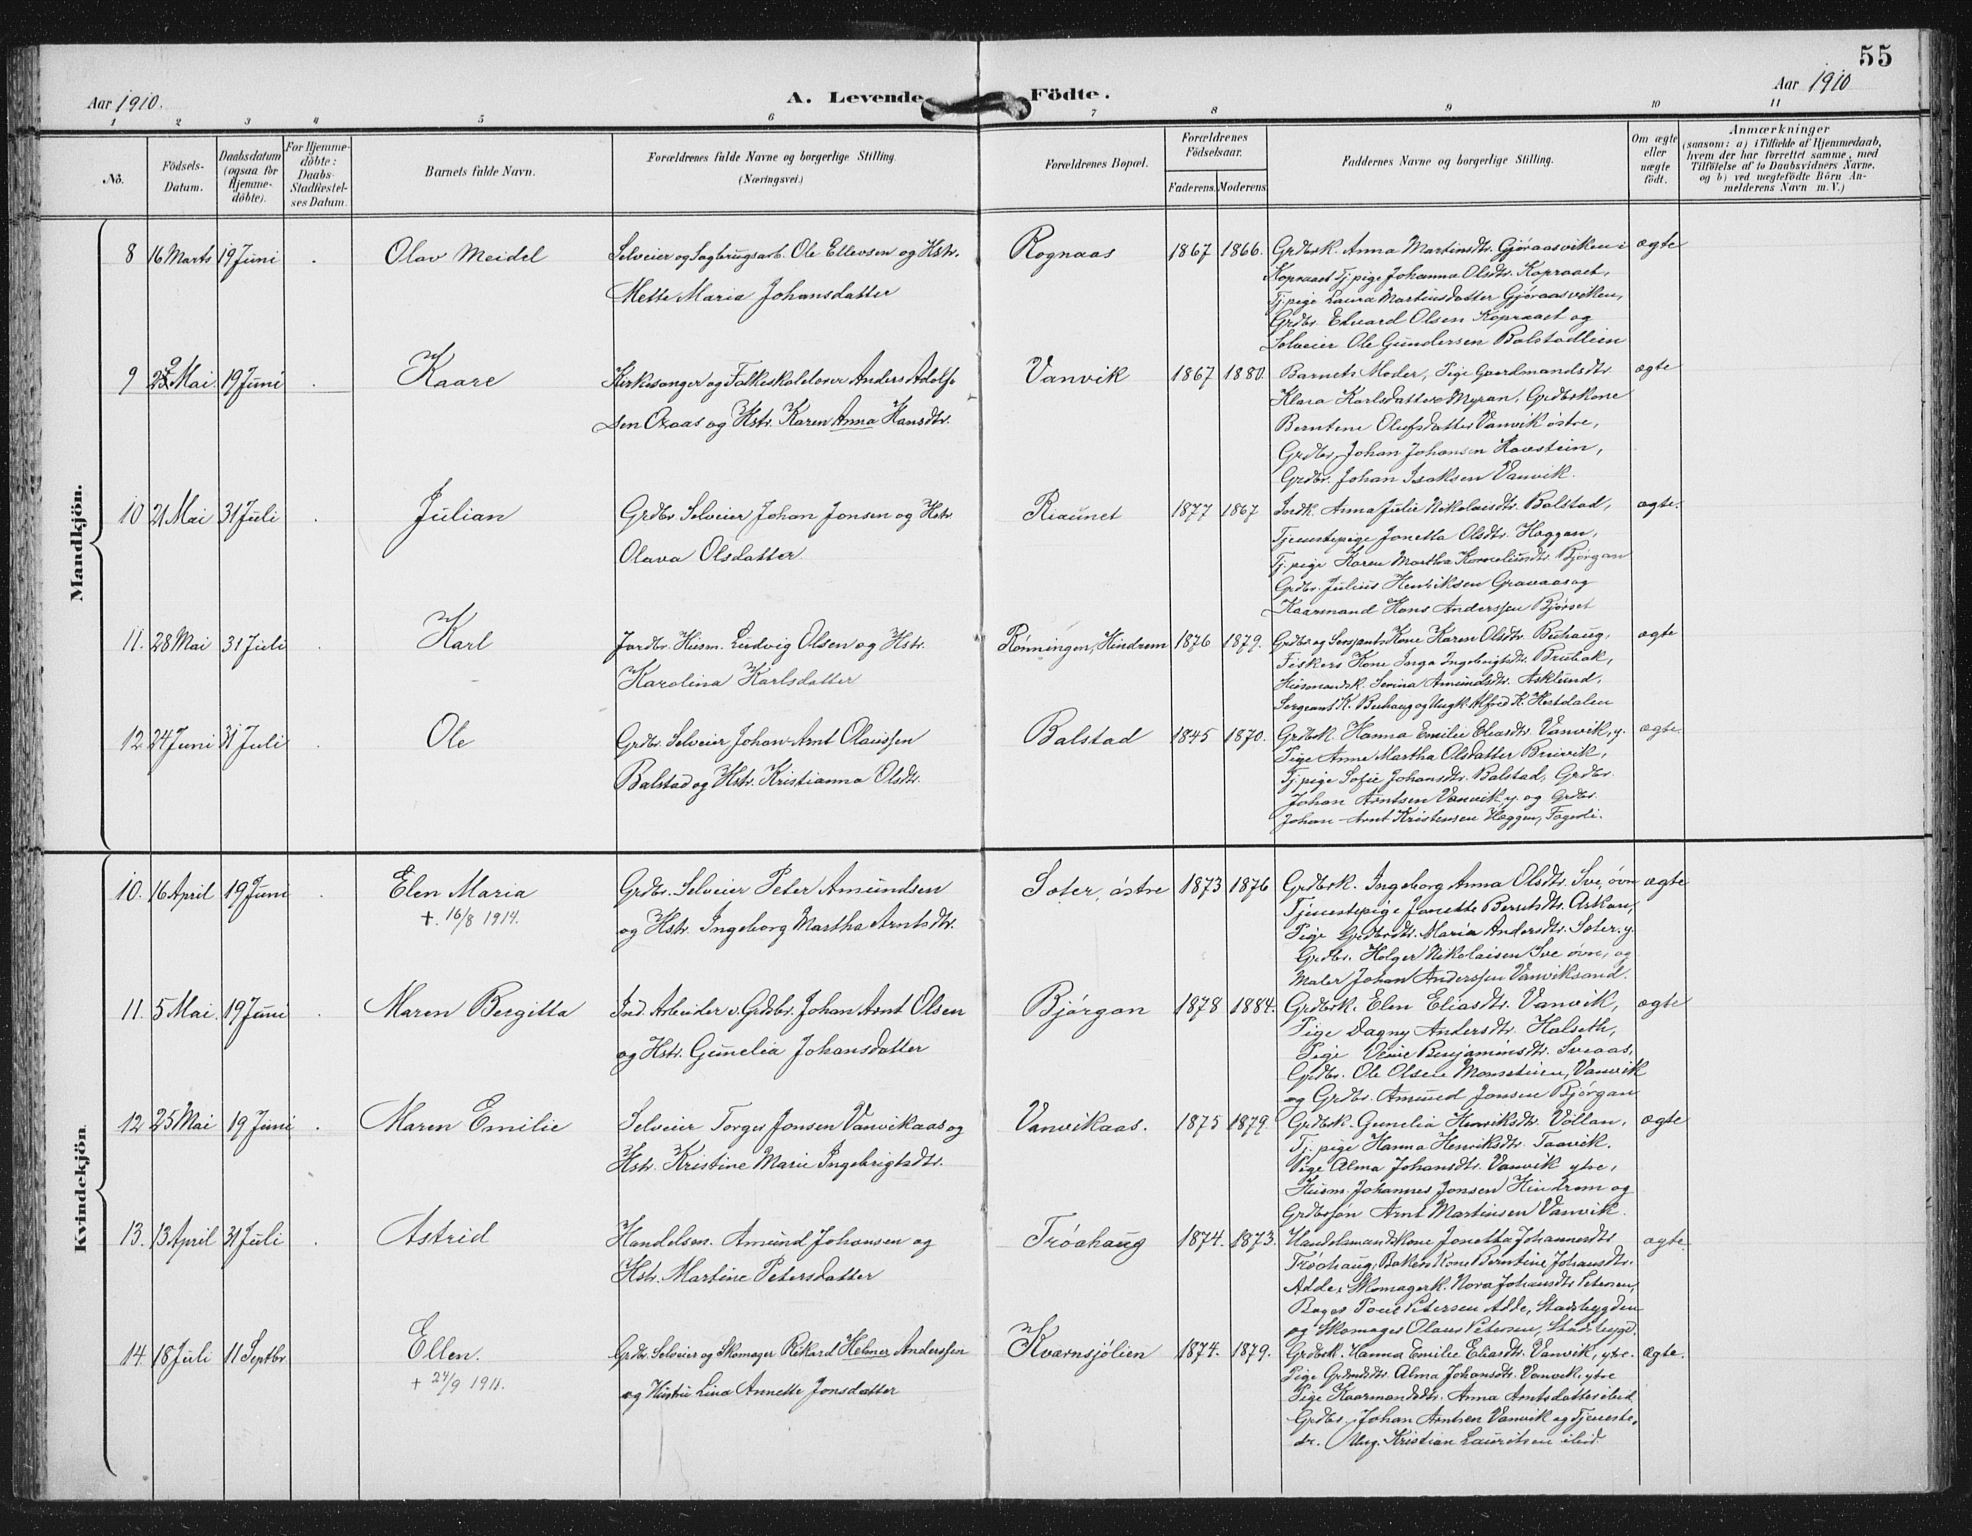 55
Aar 1910.
A. Levende Födte.
Aar 1910
1 2 3 4 5 6 7 8 9 10 11
No.
Födsels-
Datum.
Daabsdatum
(ogsaa for
Hjemme-
döbte).
For Hjemme-
döbte:
Daabs-
Stadfæstel-
ses Datum.
Barnets fulde Navn.
Forældrenes fulde Navne og borgerlige Stilling.
(Næringsvei.)
Forældrenes Bopæl.
Forældrenes
Födselsaar.
Faderens. Moderens.
Faddernes Navne og borgerlige Stilling.
Om ægte
eller
uægte
födt.
Anmærkninger
(saasom: a) i Tilfælde af Hjemmedaab,
hvem der har forrettet samme, med
Tilföielse af to Daabsvidners Navne.
og b) ved uægtefödte Börn An-
melderens Navn m. V.)
Mandkjön.
8 16 Marts 19 Juni . Olav Meidel
Selveier og Sagbrugsarb. Ole Ellevsen og Hstr.
Mette Maria Johansdatter
Rognaas 1867 1866.
Grdbrk. Anna Martinsdtr. Gjøraasviken i
Kopraaet Tj. pige Johanna Olsdtr. Kopraaet,
Tj. pige Laura Martinsdatter Gjøraasviken,
Grdbr. Edvard Olsen Kopraaet og
Selveier Ole Gundersen Balstadleien
ægte
9 Mai. 19 Juni . Kaare
Kirkesanger og Folkeskolelærer Anders Adolf
sen Oxaas og Hstr. Karen Anna Hansdtr.
Vanvik 1867 1880.
Barnets Moder, Pige Gaardmandsdtr
Klara Karlsdatter Myran, Grdbrkone
Berntine Olufsdatter Vanvik østre,
Grdbr. Johan Johansen Havstein,
Grdbr. Johan Isaksen Vanvik.
ægte
10 21 Mai 31 Juli . Julian
Grdbr. Selveier Johan Jonsen og Hstr
Olava Olsdatter.
Riaunet 1877 1867
Jordk. Anna Julie Nikolaisdtr. Balstad,
Tjenestepige Jonetta Olsdtr. Haggan,
Tj. pige Karen Martha Korneliusdtr. Bjørgan
Grdbr. Julius Henriksen Gravaas og
Kaarmand Hans Anderssen Bjørset
ægte.
11. 28 Mai 31 Juli . Karl
Jordbr. Husm. Ludvig Olsen og Hstr.
Karolina Karlsdatter
Rønningen, Hindrem 1876 1879.
Grdbr og Serjants Kone Karen Olsdtr. Buhaug,
Fiskers Kone Inga Ingebrigtsdtr. Brubak,
Husmandsk. Serina Amundsdtr. Asklund,
Sergeant K. Buhaug og Ungk. Alfred K. Hestdalen
ægte
12 24 Juni 31 Juli . Ole
Grdbr. Selveier Johan Arnt Olaussen
Balstad og Hstr. Kristianna Olsdtr.
Balstad 1845 1870.
Grdbrk. Hanna Emilie Eliasdtr. Vanvik, y.
Pige Anne Martha Olsdatter Breivik,
Tj. pige Sofie Johansdtr. Balstad, Grdbr.
Johan Arntsen Vanvik y. og Grdbr.
Johan-Arnt Kristensen Haggen, Fagerli.
ægte.
Kvindekjön.
10. 16 April 19 Juni . Elen Maria
+. 16/8 1914.
Grdbr. Selveier Peter Amundsen
og Hstr. Ingeborg Martha Arntsdtr.
Sæter, østre 1873 1876
Grdbrk. Ingeborg Anna Olsdtr. Sve, øvn
Tjenestepige Jonette Berntsdtr. Askan,
Pige Grdbrdtr. Maria Andersdtr. Sæter. y.
Grdbr. Holger Nikolaisen Sve øvn, og
Maler Johan Anderssen Vanviksand.
ægte
11. 5 Mai. 19 Juni . Maren Bergitta
Ind. Arbeider v. Grdbr. Johan Arnt Olsen
og Hstr. Gunelia Johansdatter
Bjørgan 1878 1884.
Grdbrk. Elen Eliasdtr. Vanvik,
Pige Dagny Andersdtr. Halseth,
Pige Benjaminsdtr. Sveaas,
Grdbr. Ole Olsen Monsteien, Vanvik
og Grdbr. Amund Jonsen Bjørgan
ægte
12 25 Mai 19 Juni . Maren Emilie
Selveier Torger Jonsen Vanvikaas og
Hstr. Kristine Marie Ingebrigtsdtr.
Vanvikaas. 1875 1879.
Grdbrk. Gunelia Henriksdtr. Vollan,
Tj. pige Hanna Henriksdtr. Taavik.
Pige Alma Johansdtr. Vanvik ytre,
Husm. Johannes Jonsen Hindrem og
Grdbrsøn Arnt Martinsen Vanvik.
ægte
13. 13 April 31 Juli . Astrid
Handelsm. Amund Johansen og
Hstr. Martine Petersdatter
Trøahaug 1874. 1873.
Handelsmandskone Jonetta Johannesdtr
Trøahaug, Bakers Kone Berntine Johansdtr.
Adde, Skomagerk. Nora Johansdtr Petersen,
Bager Poul Petersen Adde, Stadsbygden
og Skomager Olaus Petersen, Stadsbygd.
ægte.
14. 18 Juli 11 Septbr. Ellen.
+ 24/9 1911.
Grdbr. Selveier og Skomager Rikard Helmer Anderssen
og Hustru Lina Annette Jonsdatter
Kvarnsjølien 1874. 1879.
Grdbrk. Hanna Emilie Eliasdtr. Vanvik, ytre.
Pige Grdmdsdtr. Alma Johansdtr. Vanvik, ytre
Pige Kaarmandsdtr. Anna Arntsdatter ibid.
Grdbr. Johan Arntsen Vanvik og Tjeneste.
dr. Ung. Kristian Lauritsen ibid.
ægte.